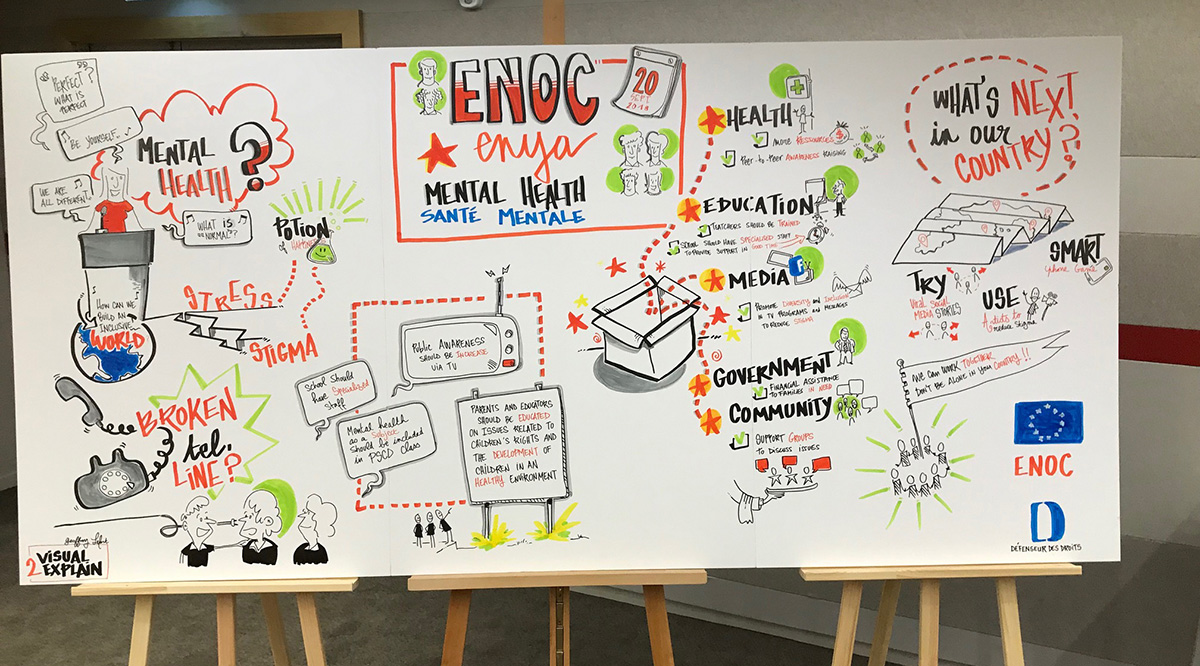 PERFECT?
WHAT IS
PERFECT
BE YOURSELF..
WE ARE
ALL DIFFERENT..
MENTAL
HEALTH?
WHAT IS
NORMAL??
POTION
OF HAPPINESS
HOW CAN WE
BUILD AN
INCLUSIVE
WORLD
STRESS
STIGMA
BROKEN
tel.
LINE?
2 VISUAL
EXPLAIN
ENOC
enya
MENTAL HEALTH
SANTÉ MENTALE
20
SEPT
PUBLIC AWARENESS
SHOULD BE
VIA TV
School Should
have Specialized
staff
Mental health
as a Subject
should be included
in PSCD class
PARENTS AND EDUCATORS
SHOULD BE EDUCATED
ON ISSUES RELATED TO
CHILDREN'S RIGHTS AND
THE DEVELOPMENT OF
CHILDREN IN AN
HEALTHY ENVIRONMENT
HEALTH
MORE RESSOURCES
Peer-to-Peer AWARENESS RAISING
EDUCATION
TEATCHERS SHOULD BE TRAINED
SCHOOL SHOULD HAVE SPECIALISED STAFF
TO PROVIDE SUPPORT IN GOOD TIME
MEDIA
f
PROMOTE DIVERSITY AND INCLUSION
IN TV PROGRAMS AND MESSAGES
TO REDUCE STIGMA
GOVERNMENT
FINANCIAL ASSISTANCE
TO FAMILIES IN NEED
COMMUNITY
SUPPORT GROUPS
TO DISCUSS ISSUES
WHAT'S NEXT
in our
COUNTRY?
SMART
TRY
Viral Social
MEDIA STORIES
USE
Artists to
reduce stigma
WE CAN WORK TOGETHER
DON'T BE ALONE IN YOU COUNTRY!!
ENOC
DÉFENSEUR DES DROITS